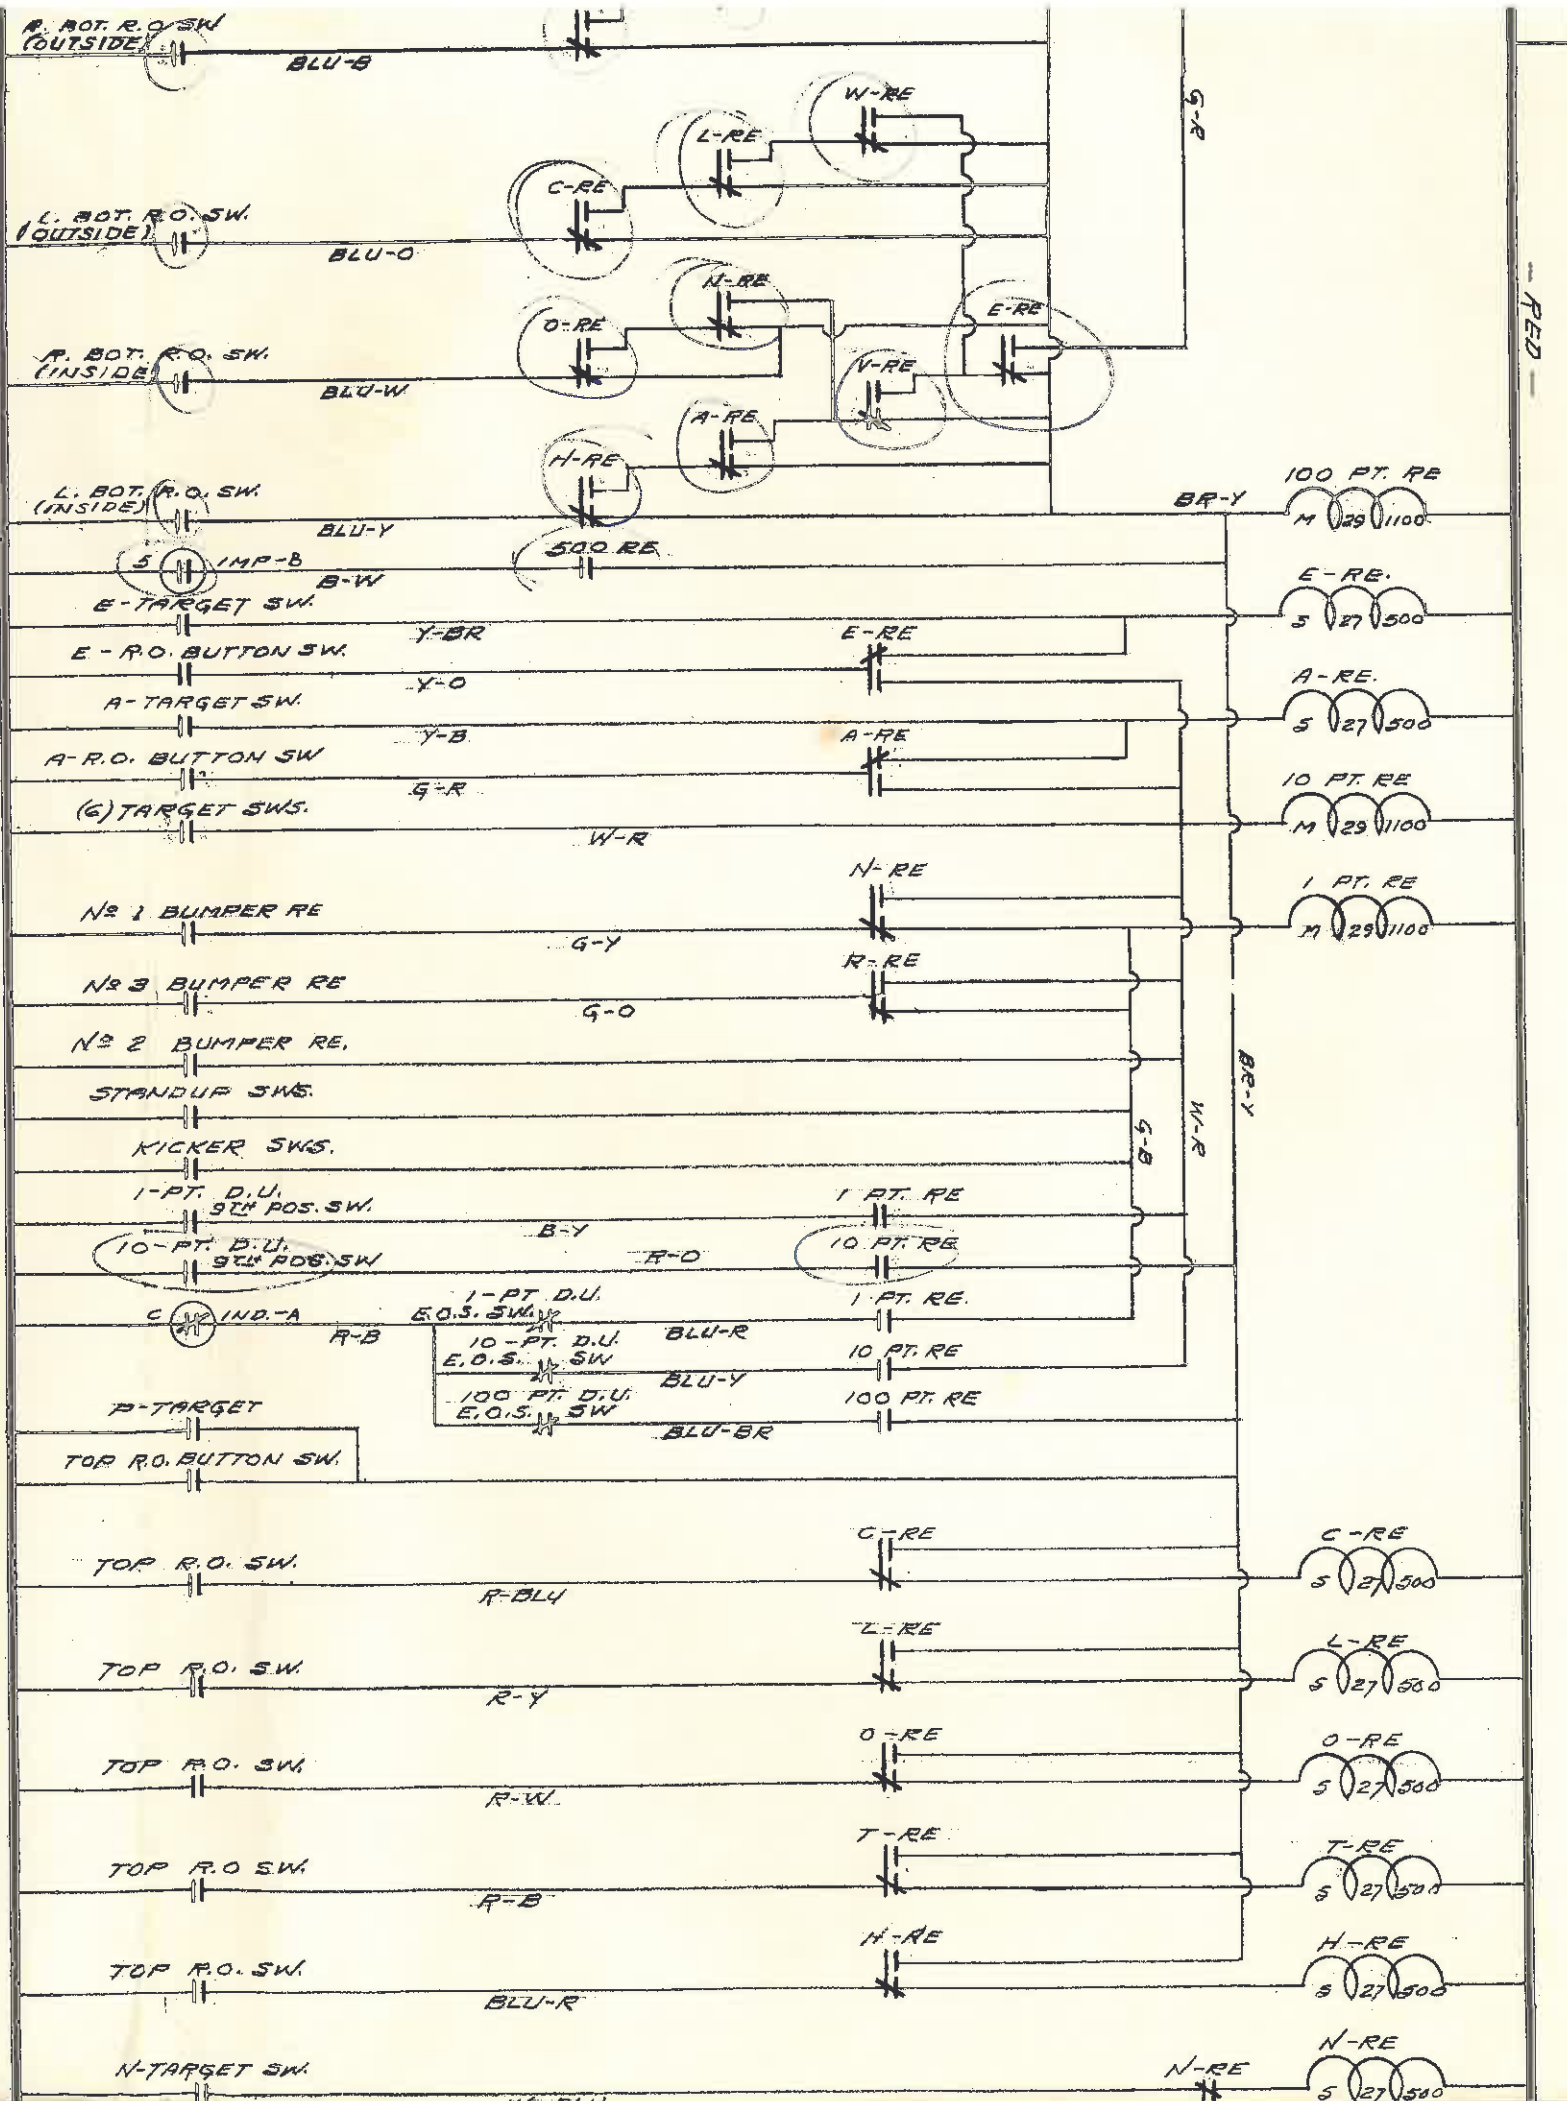 R. BOT. R.O SW
(OUTSIDE)
BLU-B
W-RE
G-R
L-RE
C-RE
L. BOT. R.O. SW.
(OUTSIDE)
BLU-O
N-RE
O-RE
E-RE
- RED -
R. BOT. R.O. SW.
(INSIDE)
BLU-W
V-RE
A-RE
H-RE
L. BOT. R.O. SW.
(INSIDE)
BLU-Y
BR-Y
100 PT. RE
M 29 1100
5 IMP-B
B-W
500 RE
E-TARGET SW.
Y-BR
E-RE.
S 27 500
E-R.O. BUTTON SW.
Y-O
E-RE
A-TARGET SW.
Y-B
A-RE.
S 27 500
A-R.O. BUTTON SW
G-R
A-RE
(6) TARGET SWS.
W-R
10 PT. RE
M 29 1100
Nº 1 BUMPER RE
G-Y
N-RE
1 PT. RE
M 29 1100
Nº 3 BUMPER RE
G-O
R-RE
Nº 2 BUMPER RE.
STANDUP SWS.
KICKER SWS.
G-B
W-R
BR-Y
1-PT. D.U.
9TH POS. SW.
B-Y
1 PT. RE
10-PT. D.U.
9TH POS. SW
R-O
10 PT. RE
C IND.-A
R-B
1-PT D.U.
E.O.S. SW.
BLU-R
1 PT. RE.
10-PT. D.U.
E.O.S. SW
BLU-Y
10 PT. RE
100 PT. D.U.
E.O.S. SW
BLU-BR
100 PT. RE
P-TARGET
TOP R.O. BUTTON SW.
TOP R.O. SW.
R-BLU
C-RE
C-RE
S 27 500
TOP R.O. SW.
R-Y
L-RE
L-RE
S 27 500
TOP R.O. SW.
R-W
O-RE
O-RE
S 27 500
TOP R.O SW.
R-B
T-RE
T-RE
S 27 500
TOP R.O. SW.
BLU-R
H-RE
H-RE
S 27 500
N-TARGET SW.
N-RE
N-RE
S 27 500